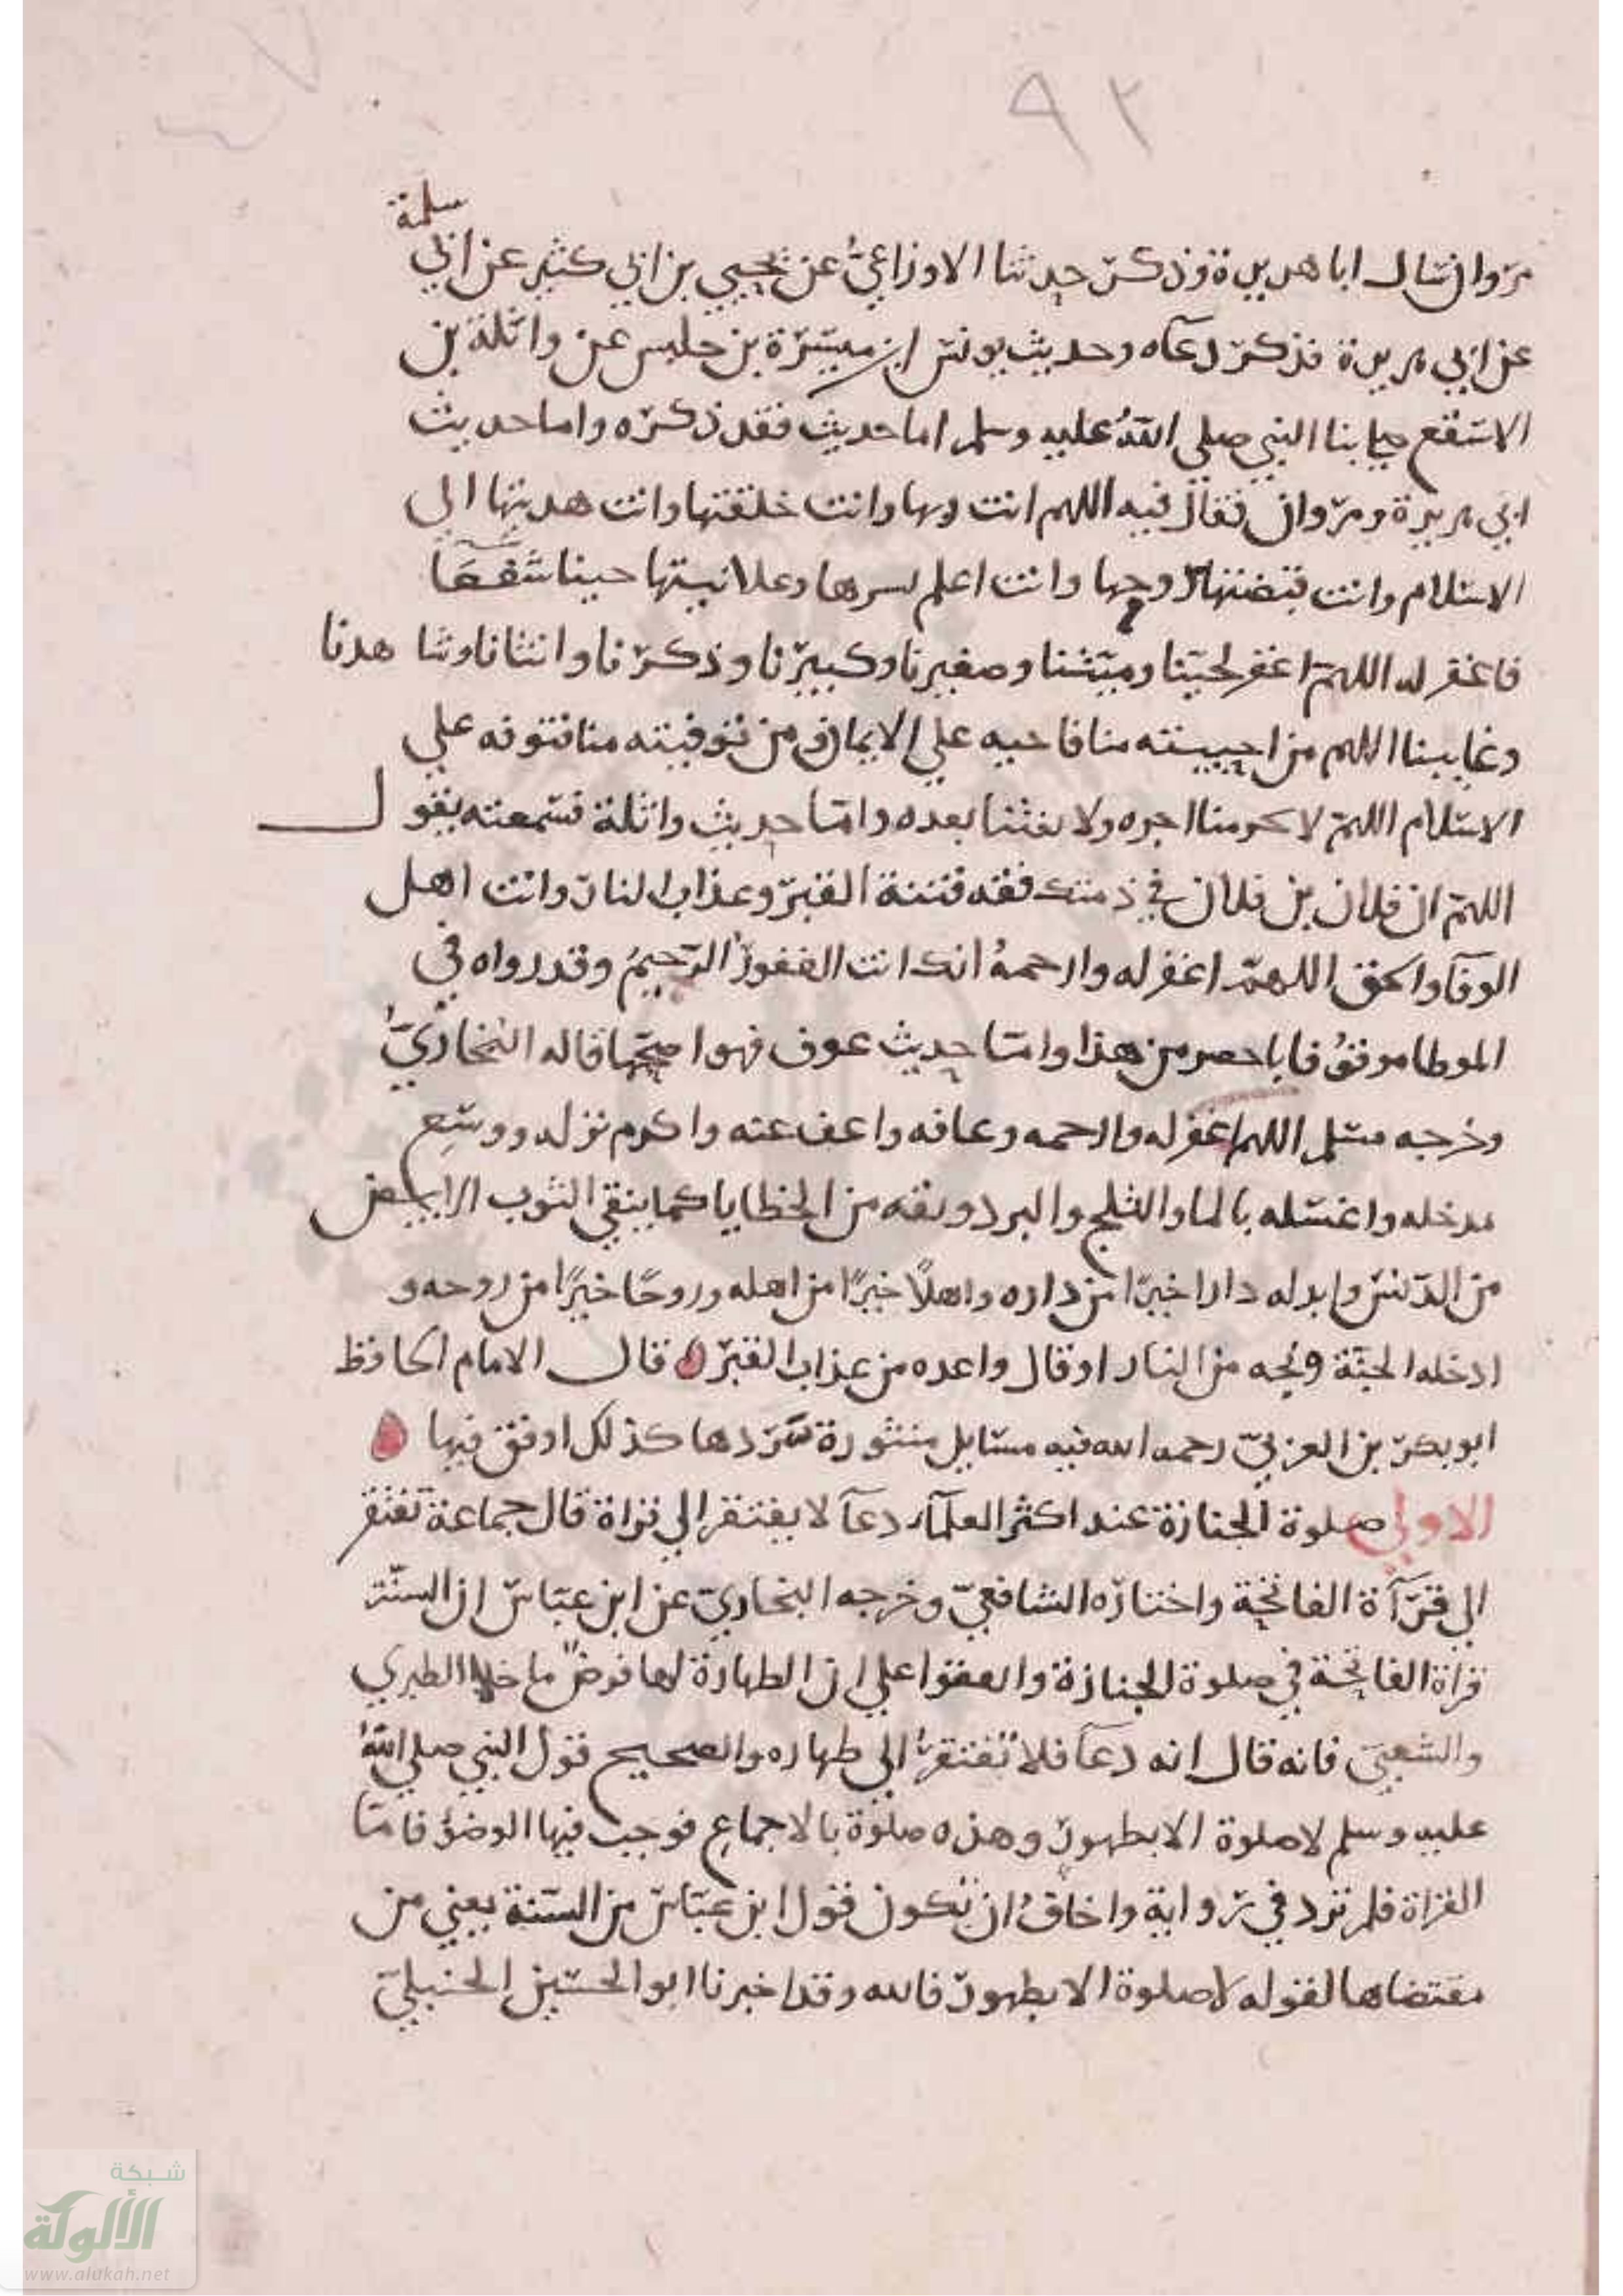 ٩٢
سلمة
مروان سال ابا هريرة وذكر حدثنا الاوزاعيُّ عن يحيي بن ابي كثير عن ابي
عن ابي هريرة فذكر دعآه وحديث يونس ابن ميسرة بن حلبس عن واثلة بن
الاسقع صلي بنا النبي صلي اللهُ عليه وسلم اما حديث فقد ذكره واما حديث
ابي هريرة ومروان فقال فيه اللهم انت ربها وانت خلقتها وانت هديتها الي
الاسلام وانت قبضتها روحها وانت اعلم بسرها وعلانيتها جينا شفعَآ
فاغفر له اللهم اغفر لحينا وميتنا وصغيرنا وكبيرنا وذكرنا وانثانا وشا هدنا
وغايبنا اللهم من احييته منا فاحيه علي الايمان ومن توفيته منا فتوفه علي
الاسلام اللهم لا تحرمنا اجره ولا تفتنا بعده واما حديث واثلة فسمعته يقول
اللهم ان فلان بن فلان في ذمتك فقه فتنة القبر وعذاب النار وانت اهل
الوفآ والحق اللهم اغفر له وارحمهُ انك انت الغفورُ الرحيمُ وقد رواه في
الموطا موقفُ فاباحصر من هذا واما حديث عوف فهو اصحها قاله البُخاريّ
وخرجه مسلم اللهم اغفر له وارحمه وعافه واعف عنه واكرم نزله ووسِع
مدخله واغسله بالما والثلج والبرد ونقه من الخطايا كما ينقي الثوب الابيض
من الدنس وابدله دارا خيرًا من داره واهلًا خيرًا من اهله وروحًا خيرًا من روحه و
ادخله الجنة ونجه من النار او قال واعده من عذاب القبر قال الامام الحافظ
ابو بكر بن العربيّ رحمه الله فيه مسايل منثورة سَرَدها كذلك اوفق فيها
الاولي صلوة الجنازة عند اكثر العلمآء دعآ لا يفتقر الي قراة قال جماعة تفتقر
الي قرَآة الفاتحة واختاره الشافعيّ وخرجه البخاريّ عن ابن عباس ان السنّة
قراة الفاتحة في صلوة الجنازة واتفقوا علي ان الطهارة لها فرضٌ ما خلا الطبري
والشعبيّ فانه قال انه دعَآ فلا تُفتقرُ الي طهاره والصحيح قول النبي صلي اللهُ
عليه وسلم لا صلوة الا بطهور وهذه صلوة بالاجماع فوجب فيها الوضؤ فاما
القراة فلم ترد في رواية واخافُ ان تكون قول ابن عباس من السنة يعني من
مقتضاها لقوله لا صلوة الا بطهور فالله وقد اخبرنا ابو الحسين الحنبليّ
شبكة
الألوكة
www.alukah.net